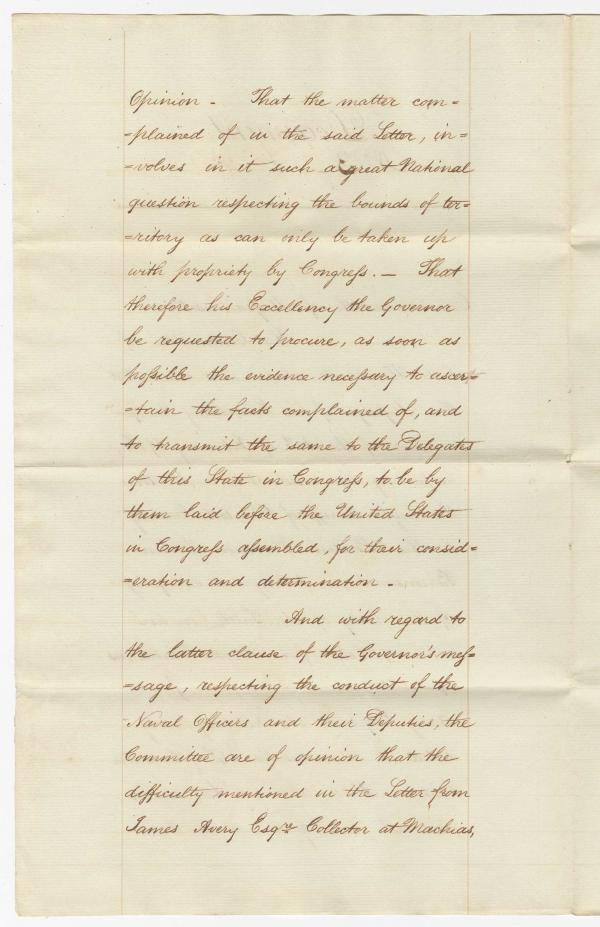 Opinion - That the matter com=
=plained of in the said Letter, in=
=volves in it such a great National
question respecting the bounds of ter=
=ritory as can only be taken up
with propriety by Congreſs. — That
therefore his Excellency the Governor
be requested to procure, as soon as
poſsible the evidence neceſsary to ascer=
=tain the facts complained of, and
to transmit the same to the Delegates
of this State in Congreſs, to be by
them laid before the United States
in Congreſs aſsembled, for their consid=
=eration and determination -
And with regard to
the latter clause of the Governor's meſ=
=sage, respecting the conduct of the
Naval Officers and their Deputies, the
Committee are of opinion that the
difficulty mentioned in the Letter from
James Avery Esqre Collector at Machias,